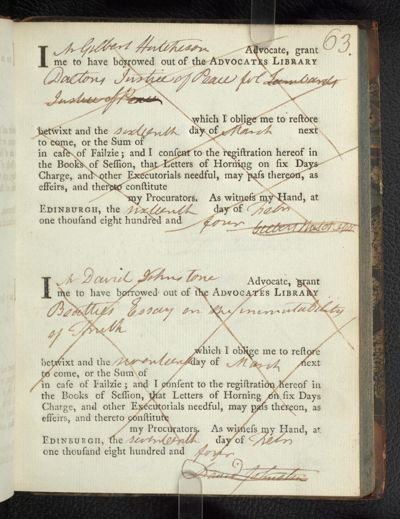 63.
I Mr Gilbert Hutcheson Advocate, grant
me to have borrowed out of the ADVOCATES LIBRARY
Daltons Justice of Peace fol Lambards
Justice of Peace
which I oblige me to reſtore
betwixt and the sixteenth day of March next
to come, or the Sum of
in caſe of Failzie; and I conſent to the regiſtration hereof in
the Books of Seſſion, that Letters of Horning on ſix Days
Charge, and other Executorials needful, may paſs thereon, as
effeirs, and thereto conſtitute
my Procurators. As witneſs my Hand, at
EDINBURGH, the sixteenth day of Febry
one thouſand eight hundred and four Gilbert Hutcheson
I Mr David Johnstone Advocate, grant
me to have borrowed out of the ADVOCATES LIBRARY
Beatties Essay on the immutability
of Truth
which I oblige me to reſtore
betwixt and the seventeenth day of March next
to come, or the Sum of
in caſe of Failzie; and I conſent to the regiſtration hereof in
the Books of Seſſion, that Letters of Horning on ſix Days
Charge, and other Executorials needful, may paſs thereon, as
effeirs, and thereto conſtitute
my Procurators. As witneſs my Hand, at
EDINBURGH, the seventeenth day of Febry
one thouſand eight hundred and four
David Johnston